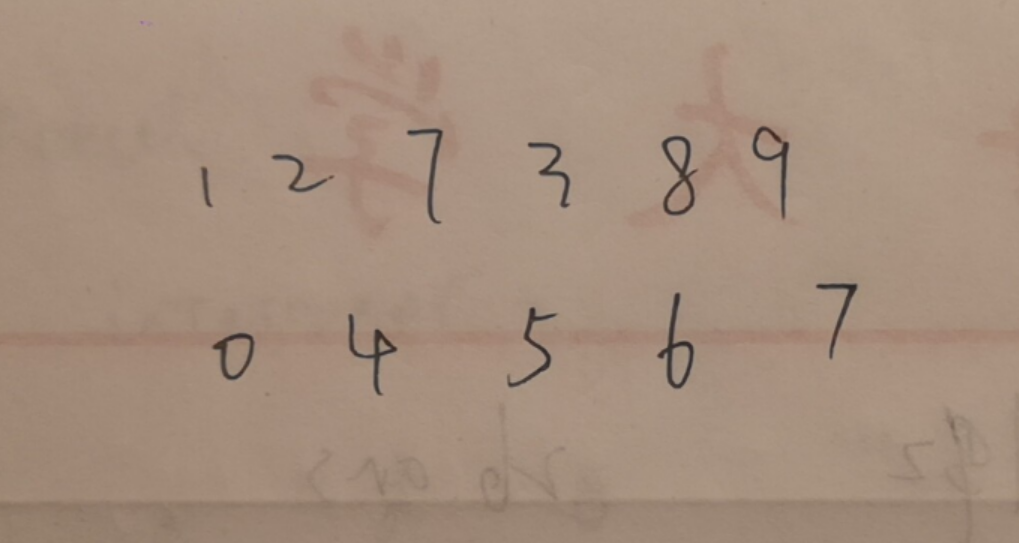 1 2 7 3 8 9
0 4 5 6 7